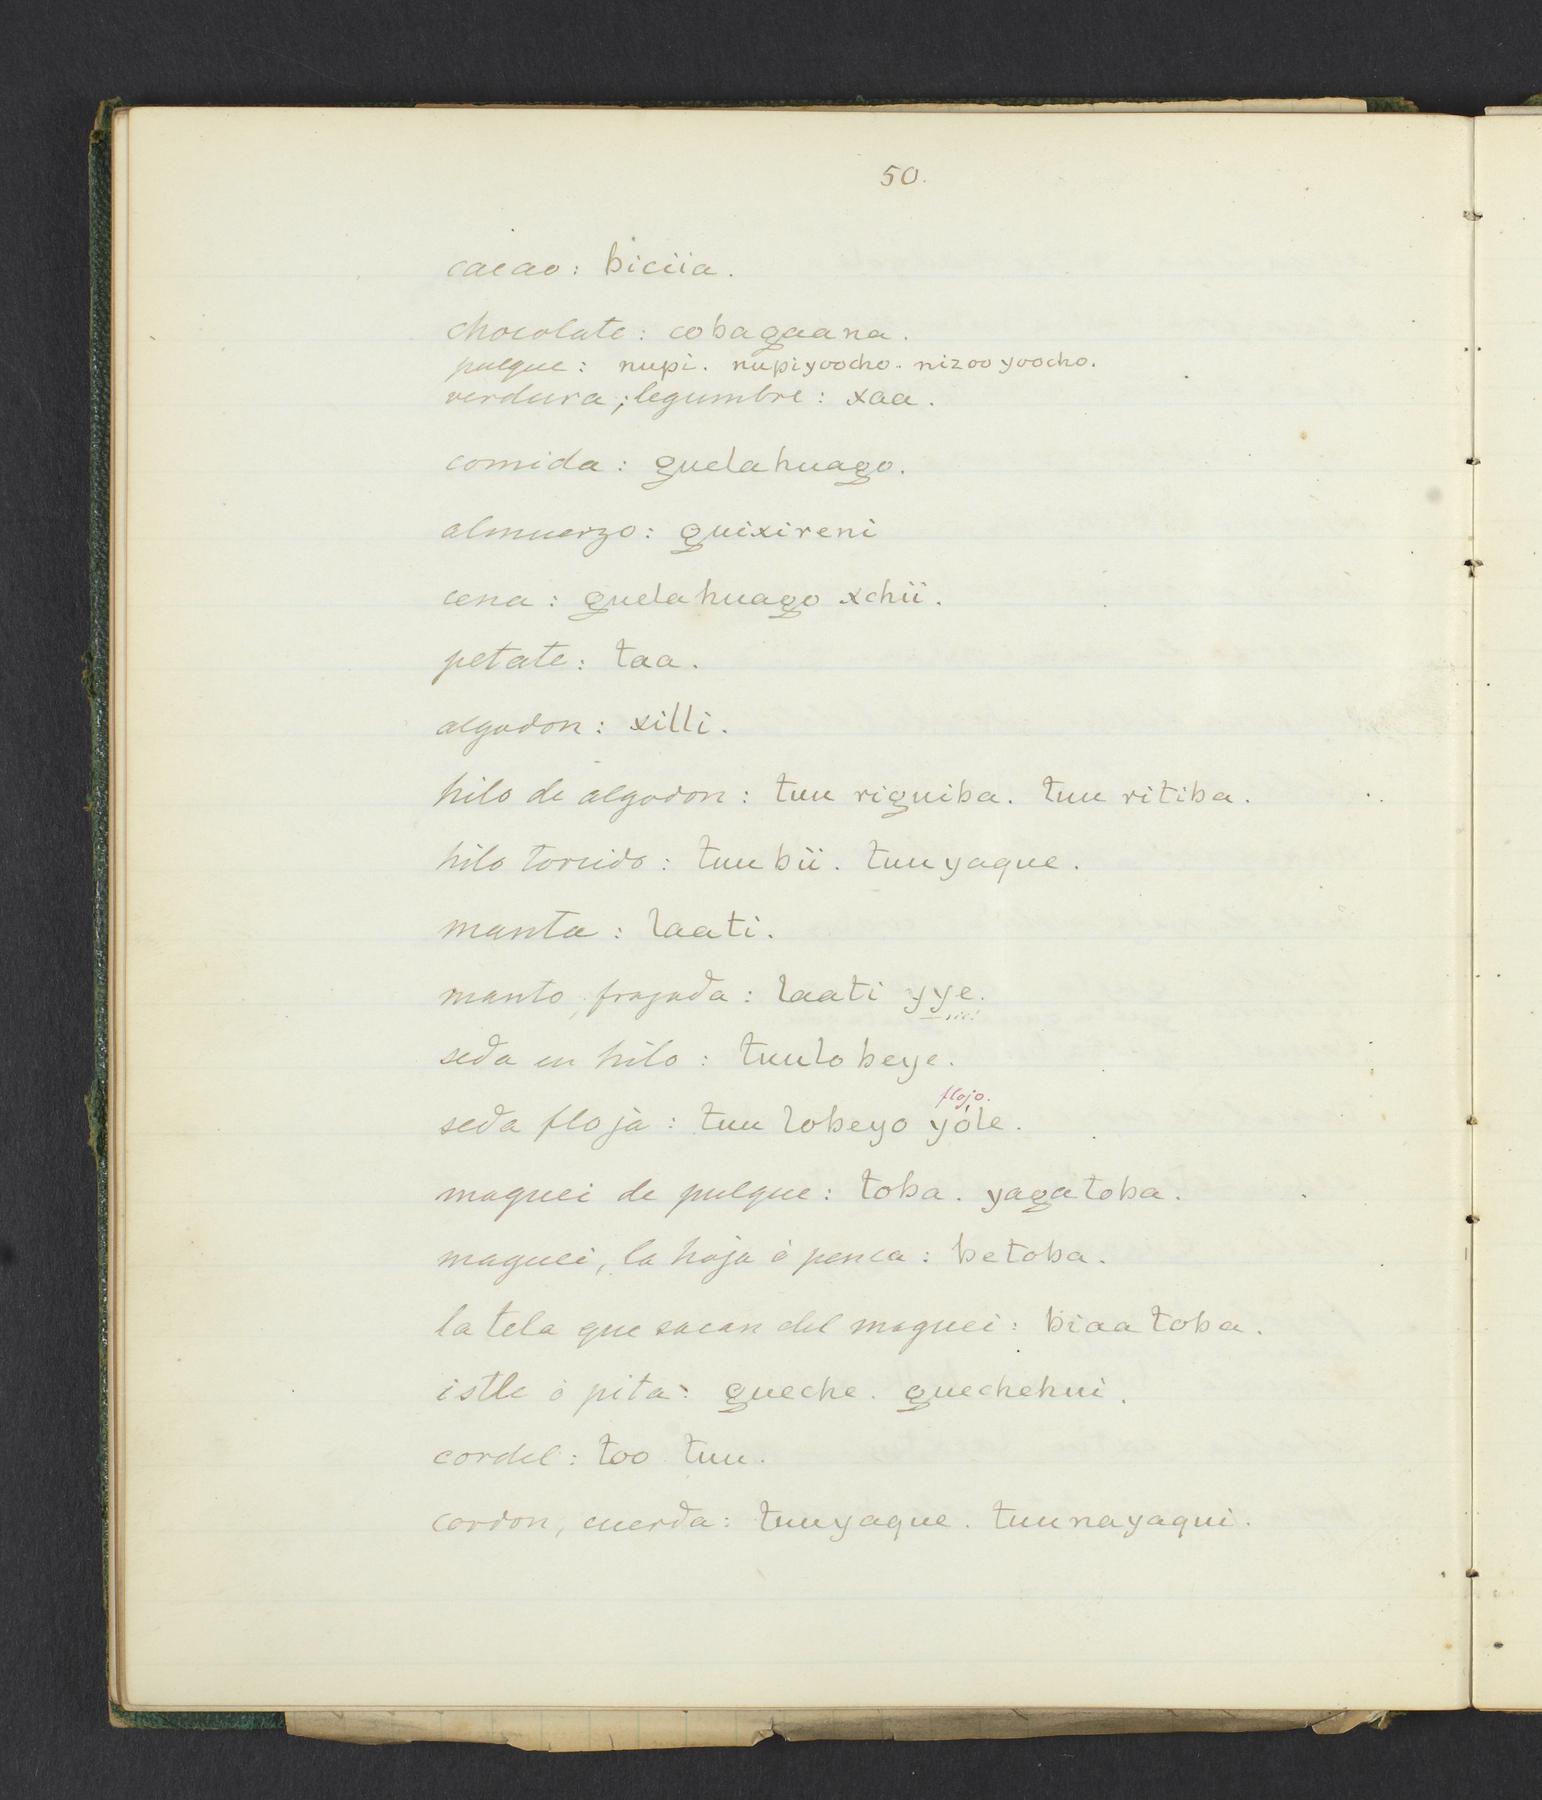 50.
cacao: biciia.
chocolate: cobagaana.
pulque: nupi. nupiyoocho. nizooyoocho.
verdura; legumbre: xaa.
comida: guelahuago.
almuerzo: guixireni
cena: guelahuago xchii.
petate: taa.
algodon: xilli.
hilo de algodon: tuu riguiba. tuu ritiba.
hilo torcido: tuubii. tuuyaque.
manta: laati.
manto, frazada: laati yye.
sic!
seda en hilo: tuulobeye.
flojo.
seda floja: tuu lobeyo yóle.
maguei de pulque: toba. yagatoba.
maguei, la hoja ò penca: betoba.
la tela que sacan del maguei: biaatoba.
istle ò pita: gueche. guechehui.
cordel: too tuu.
cordon, cuerda: tuuyaque. tuunayaqui.